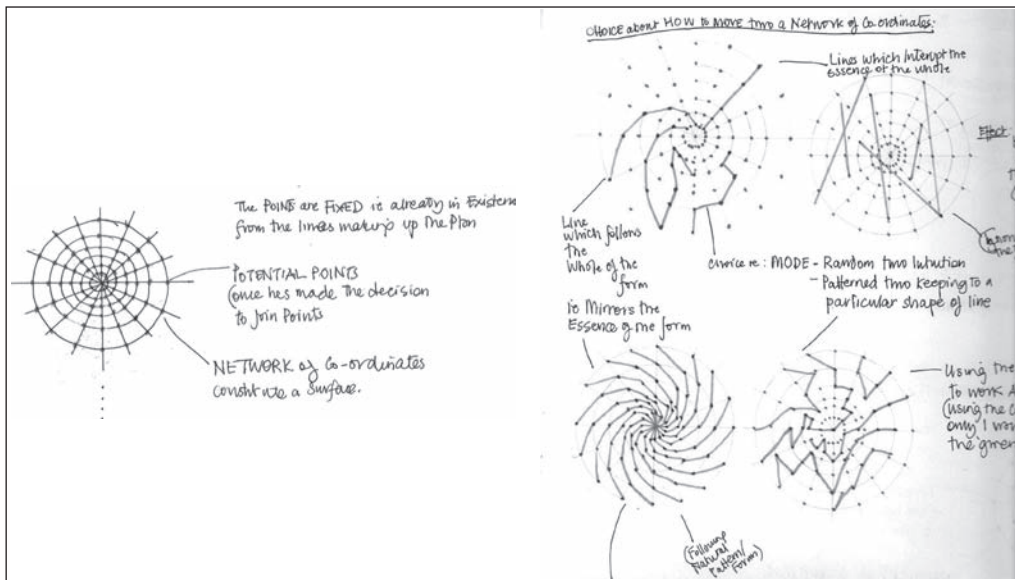 The POINTS are FIXED ie already in Existen
from the lines making up the Plan
POTENTIAL POINTS
(once hes made the decision
to Join Points
NETWORK of Co-ordinates
constitute a surface.
CHOICE about HOW to MOVE two a Network of Co-ordinates:
Lines which Interupt the
essence of the whole
Effect:
Line
which follows
the
Whole of the
form
choice re: MODE - Random two Intution
- Patterned two keeping to a
particular shape of line
ie Mirrors the
Essence of the form
Using the
to work A
(using the C
only I wo
the
(Following
Natural
Pattern/
Form)